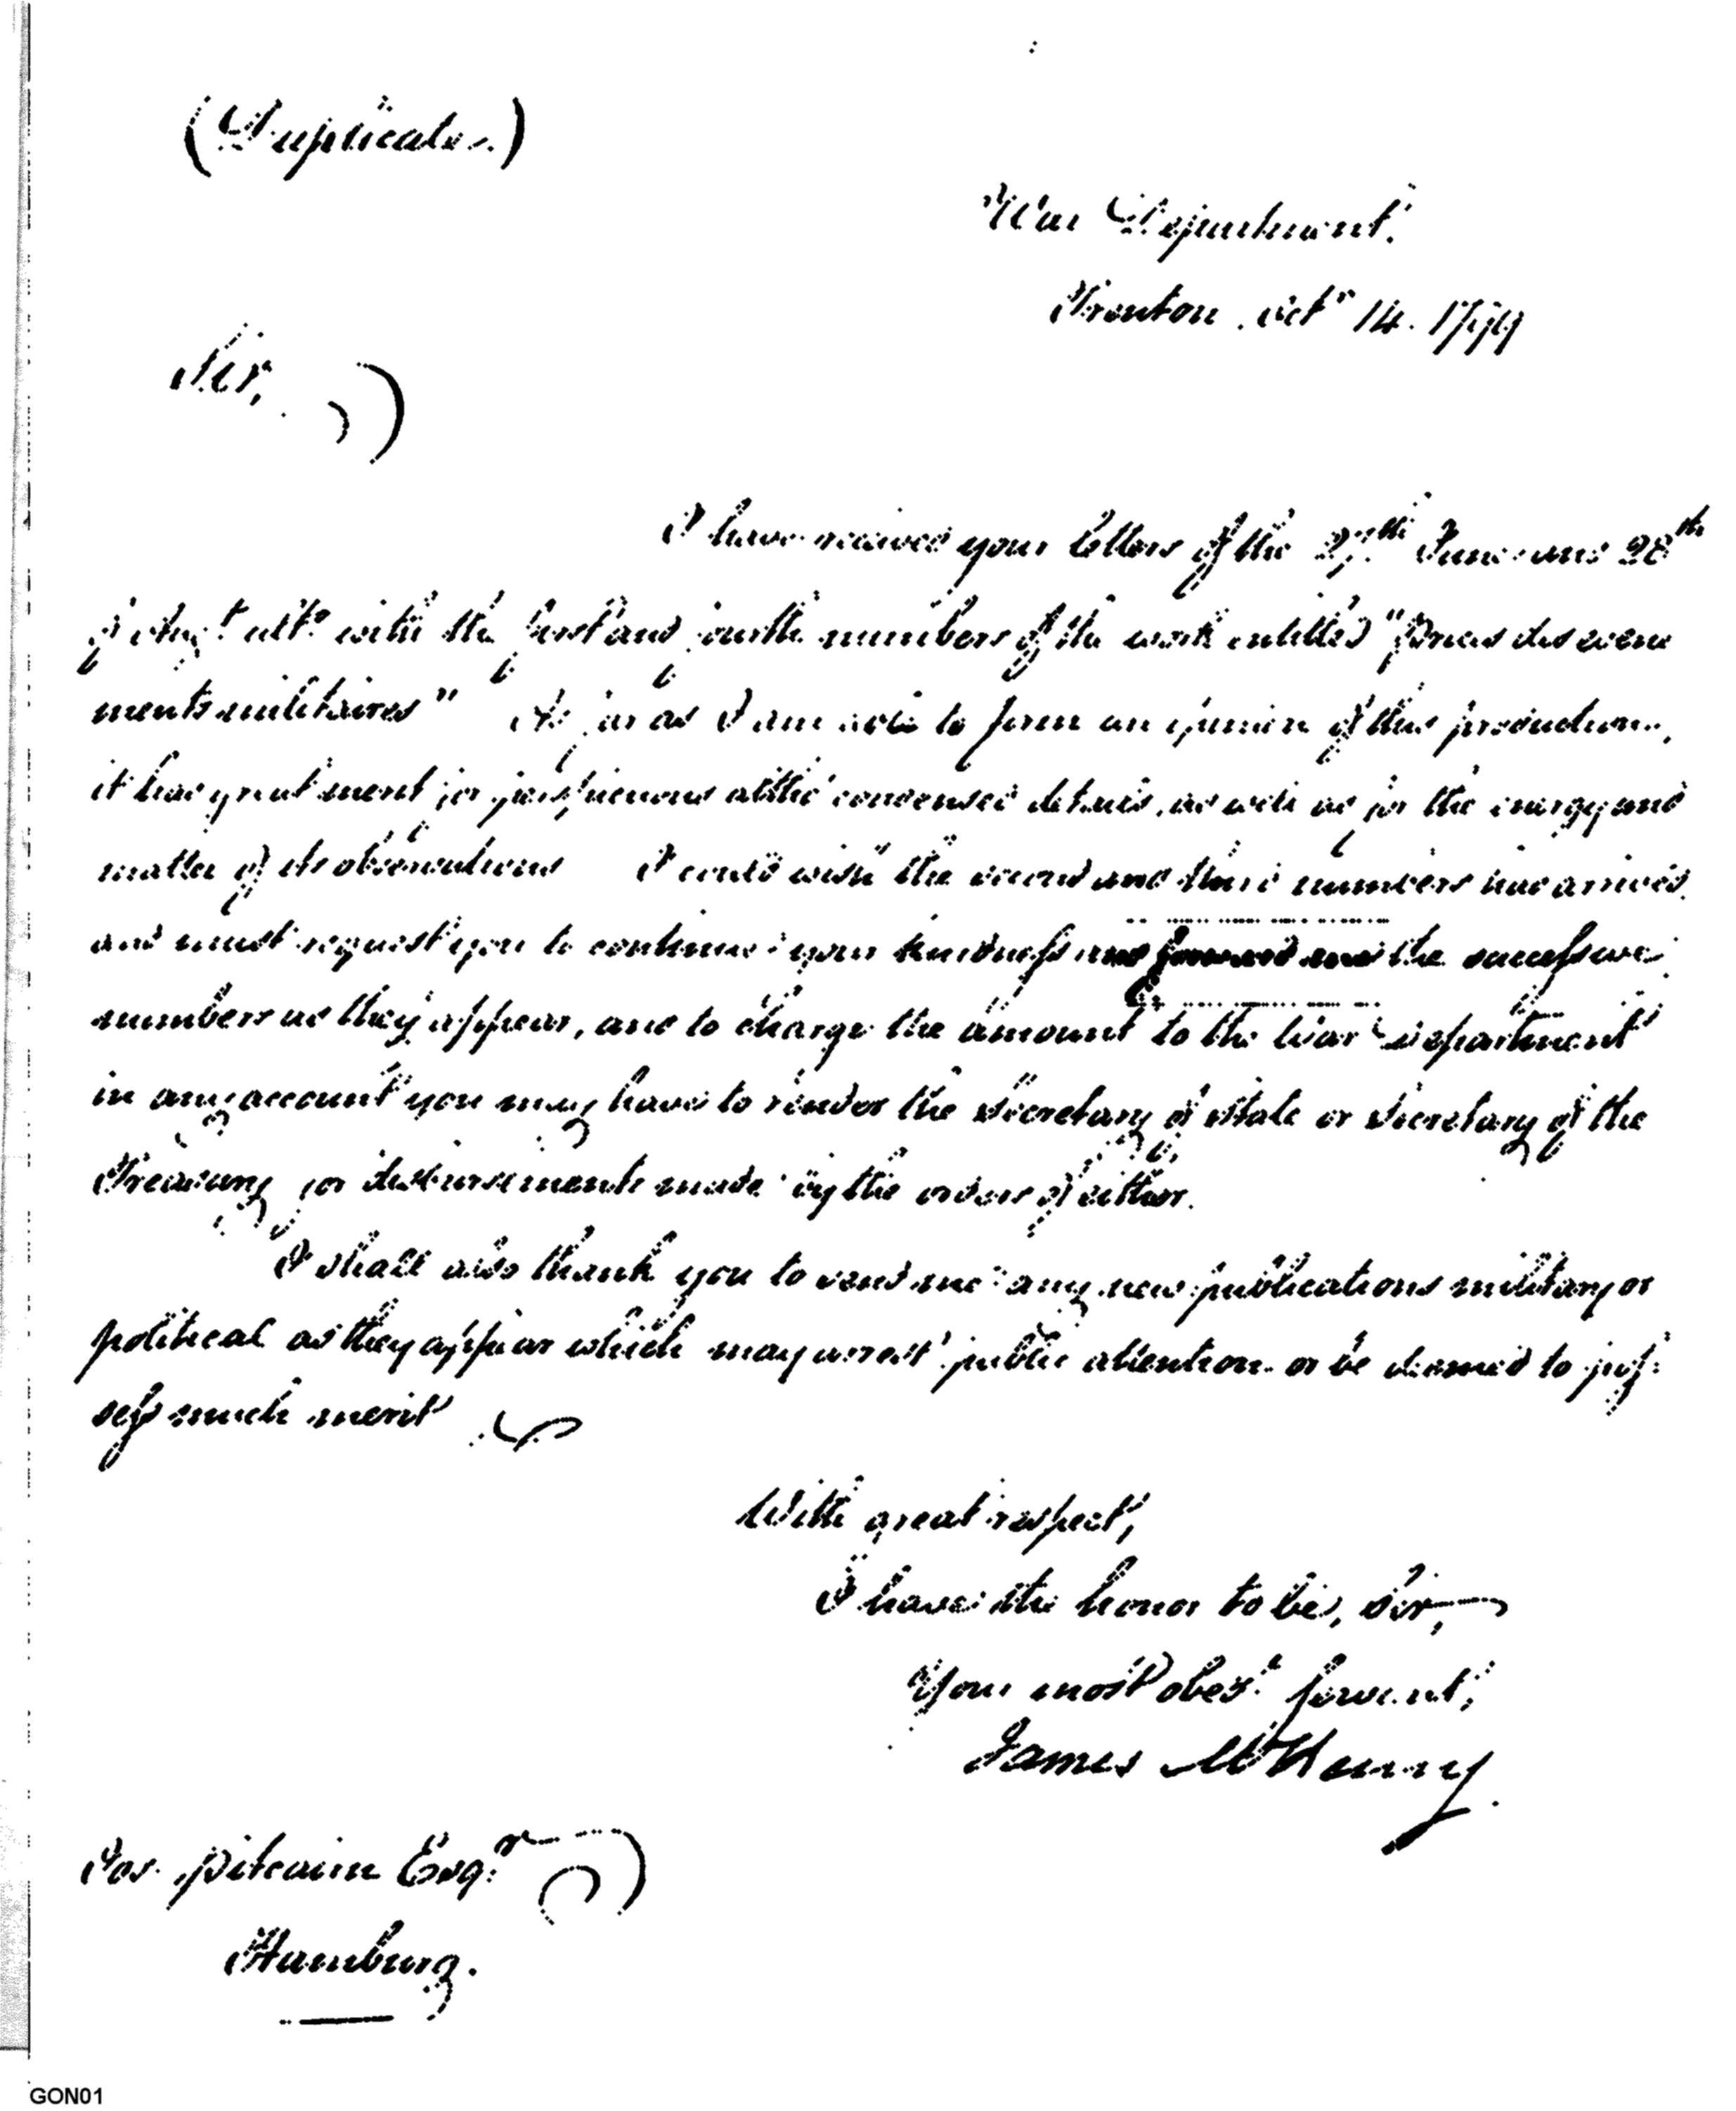 (Duplicate.)
War Department.
Trenton. Octr 14. 1799
Sir,
I have received your letters of the 27th June and 28th
of Augt ulto with the first and fourth numbers of the work entitled "Precis des evene
ments militaires" As far as I am able to form an opinion of this production,
it has great merit for perspicuous altho' condensed details, as well as for the energy and
matter of its observations I could wish the second and third numbers had arrived,
and must request you to continue your kindness and forward me the successive
numbers as they appear, and to charge the amount to the War Department
in any account you may have to render the Secretary of State or Secretary of the
Treasury for disbursements made by the orders of either.
I shall also thank you to send me any new publications military or
political as they appear which may arrest public attention or be deemed to pos-
sess much merit
With great respect,
I have the honor to be, Sir,
Your most obedt servant,
James McHenry
Jos. Pitcairn Esqr
Hamburg.
GON01